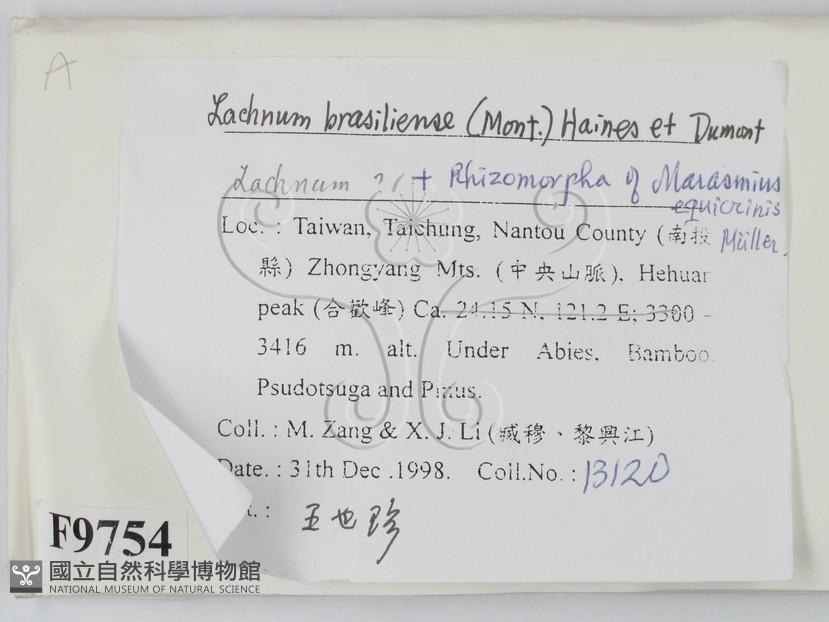 A
Lachnum brasiliense (Mont.) Haines et Dumont
Lachnum + Rhizomorpha of Marasmius
equicrinis
Müller.
Loc. : Taiwan, Taichung, Nantou County (南投
縣) Zhongyang Mts. (中央山脈), Hehuan
peak (合歡峰) Ca. 24.15 N, 121.2 E; 3300 -
3416 m. alt. Under Abies, Bamboo,
Psudotsuga and Pinus.
Coll. : M. Zang & X. J. Li (臧穆、黎興江)
Date. : 31th Dec .1998. Coll.No. : 13120
t. : 王也珍
F9754
國立自然科學博物館
NATIONAL MUSEUM OF NATURAL SCIENCE